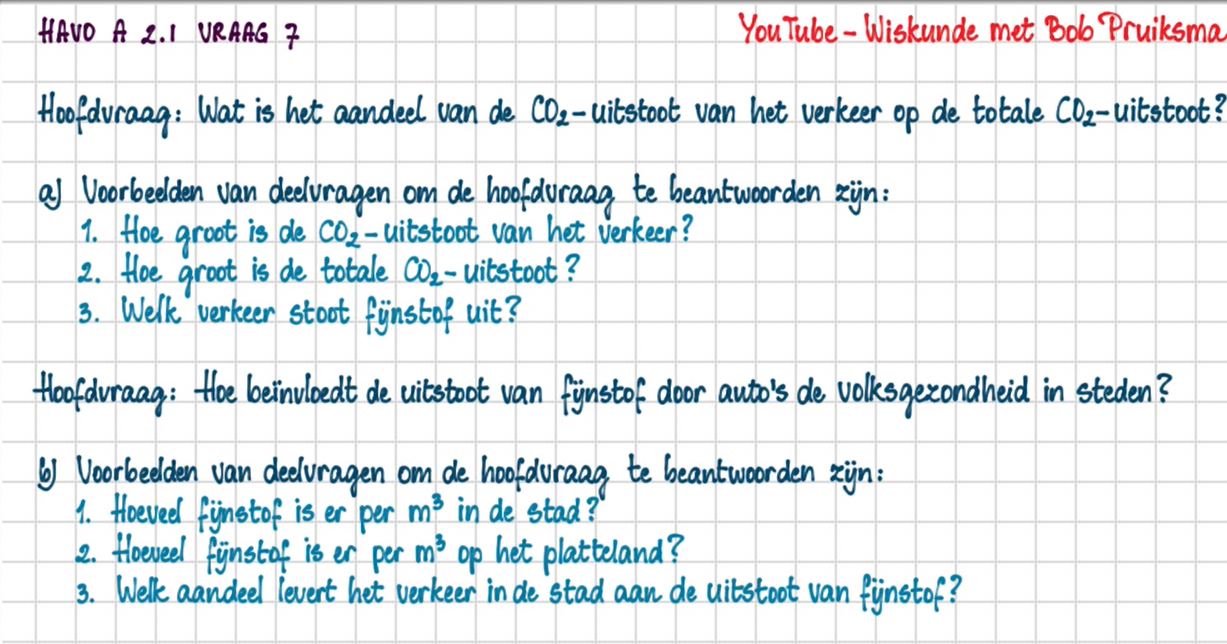 HAVO A 2.1 VRAAG 7
YouTube - Wiskunde met Bob Pruiksma
Hoofdvraag: Wat is het aandeel van de CO₂-uitstoot van het verkeer op de totale CO₂-uitstoot?
a) Voorbeelden van deelvragen om de hoofdvraag te beantwoorden zijn:
1. Hoe groot is de CO₂-uitstoot van het verkeer?
2. Hoe groot is de totale CO₂-uitstoot?
3. Welk verkeer stoot fijnstof uit?
Hoofdvraag: Hoe beïnvloedt de uitstoot van fijnstof door auto's de volksgezondheid in steden?
b) Voorbeelden van deelvragen om de hoofdvraag te beantwoorden zijn:
1. Hoeveel fijnstof is er per m³ in de stad?
2. Hoeveel fijnstof is er per m³ op het platteland?
3. Welk aandeel levert het verkeer in de stad aan de uitstoot van fijnstof?